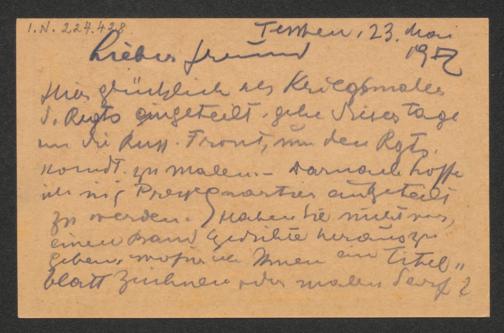 I.N. 224.428
Teschen, 23. Mai
Lieber Freund 1917
Hier glücklich als Kriegsmaler
d. Regts eingeteilt. gehe dieser tage
an die Russ. Front, um den Rgts.
Komdt. zu malen. – Darnach hoffe
ich ins Pressequartier eingeteilt
zu werden. Haben Sie nicht vor,
einen Band Gedichte herauszu
geben, wofür ich Ihnen ein Titel"
blatt zeichnen oder malen darf?